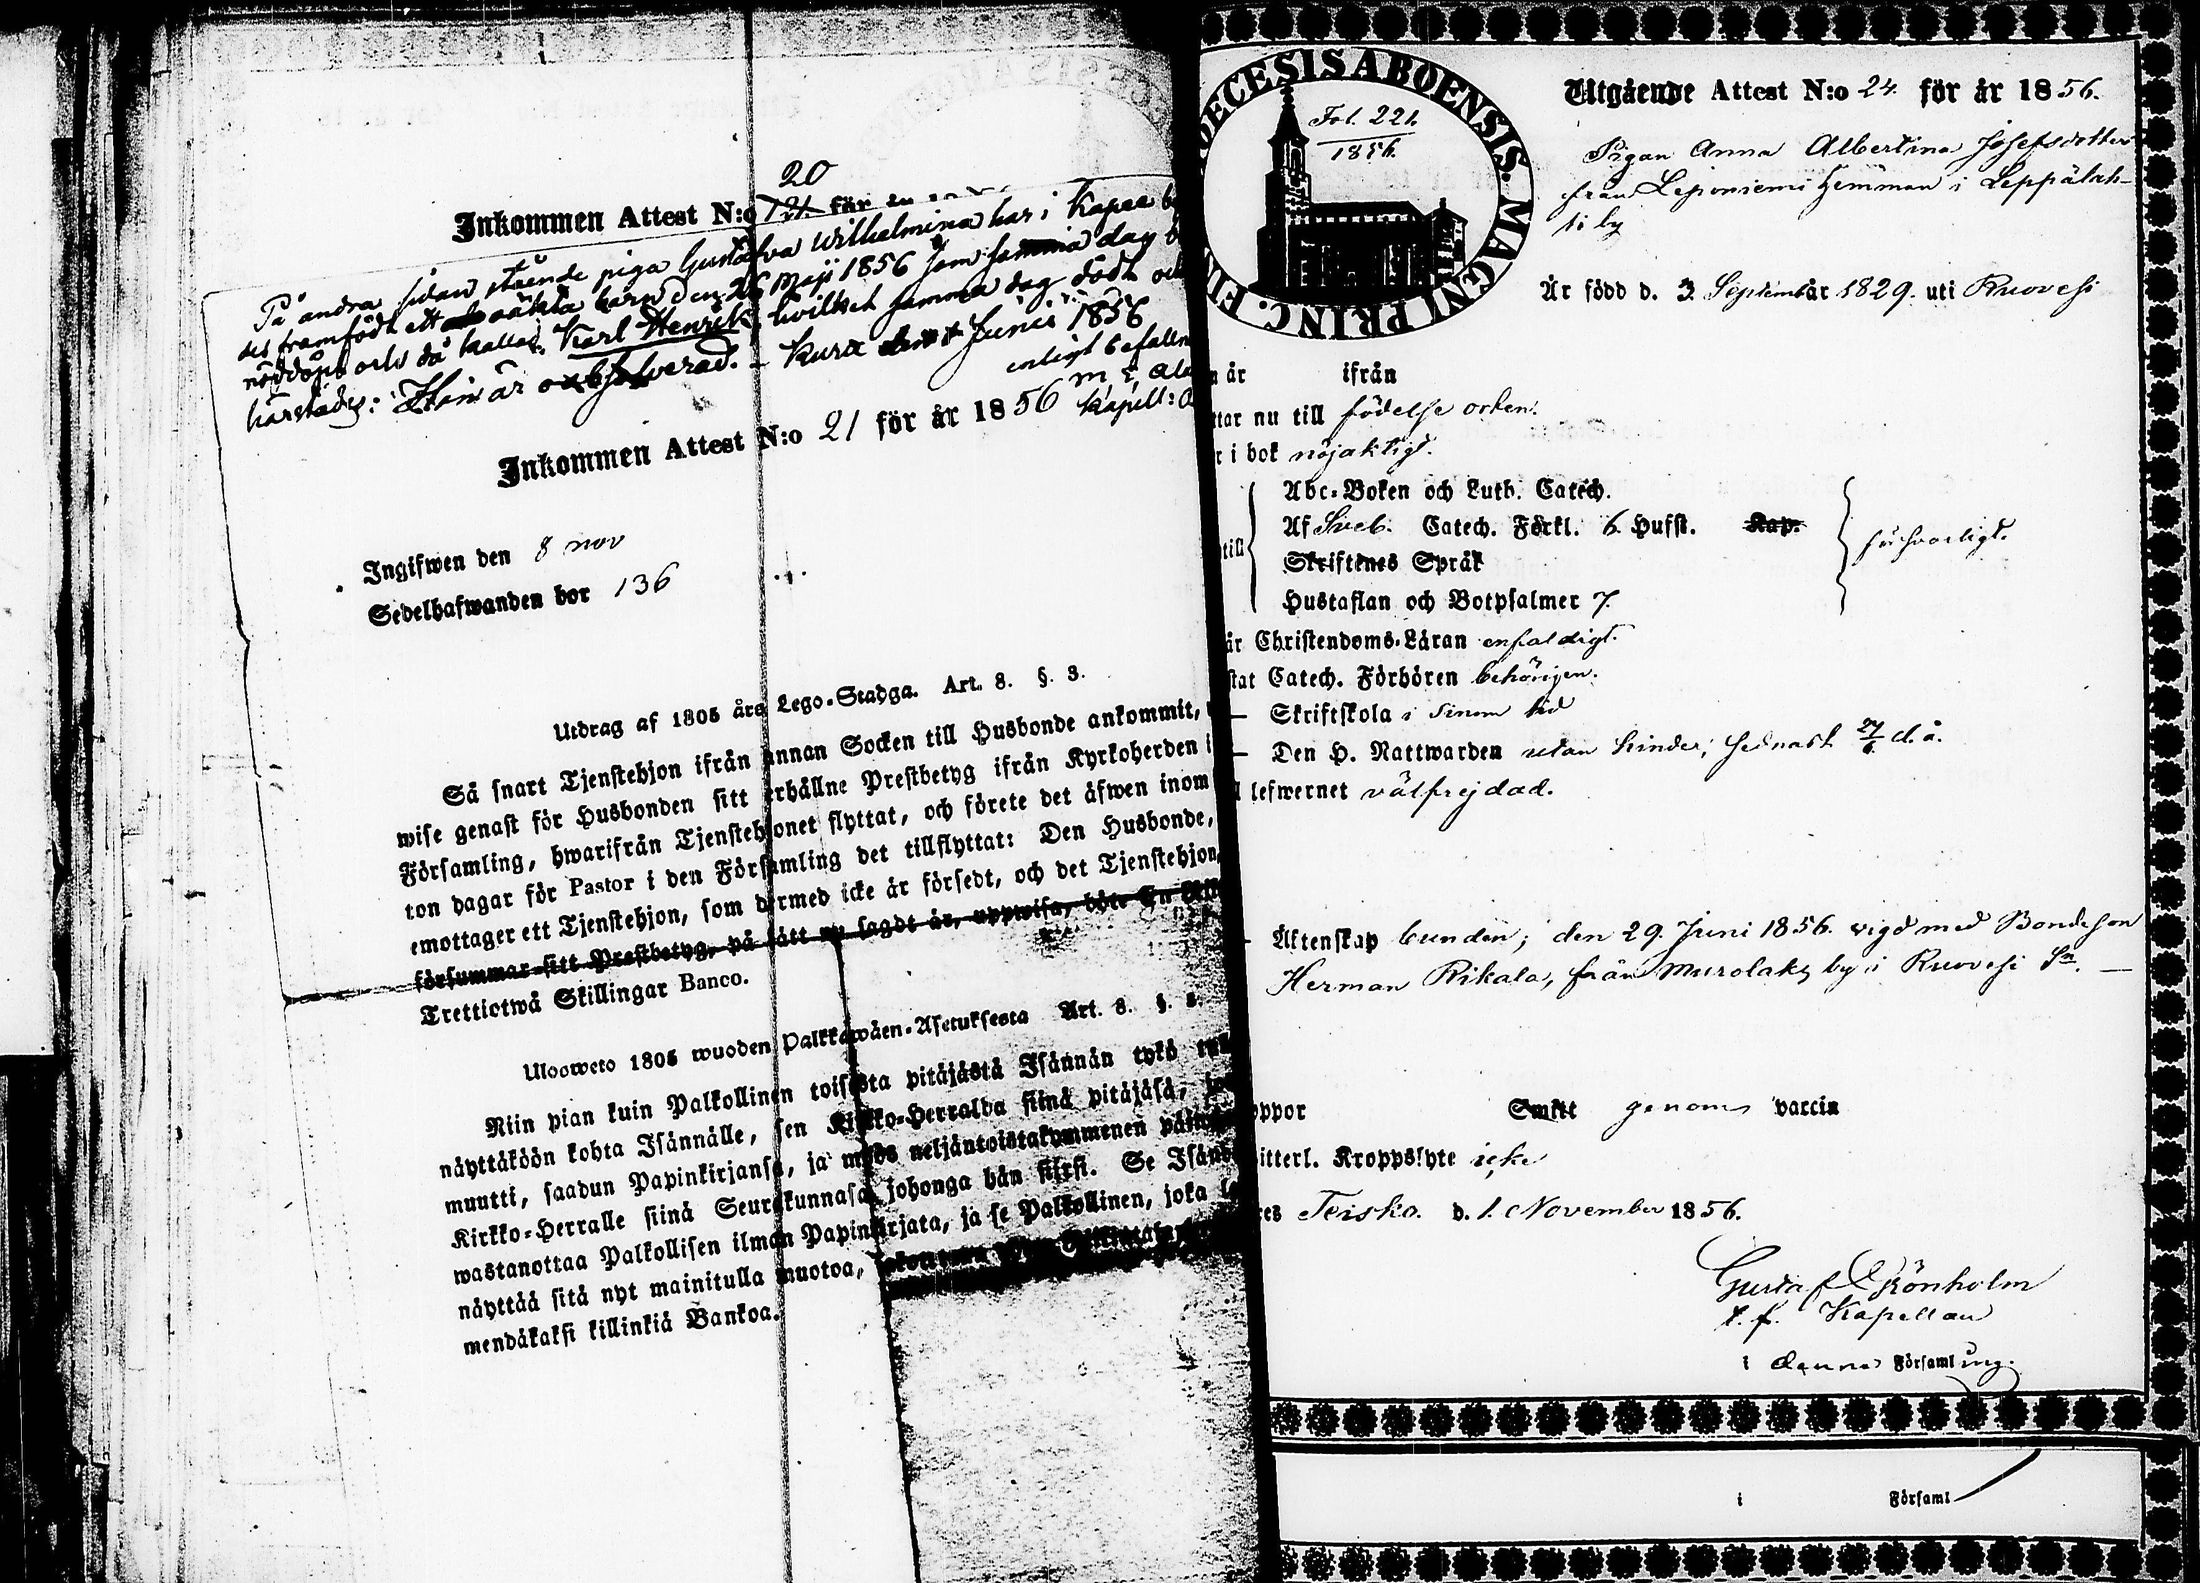 20
Inkommen Attest N:o 121. för år
På andra sidan stående piga Gustafva Wilhelmina har i Kapell
des framfödt ett oäkta barn den 26 Maji 1856 som samma dag
nöddöpt och då kallad: Karl Henrik, hvilket samma dag dödt och
härstädes: Hon är oabsolverad. – Kuru den Junii 1856
enligt befalln
m, E, Ala
Kapell:
Inkommen Attest N:o 21 för år 1856
Ingifwen den 8 nov
Sedelhafwanden bor 136
Utdrag af 1805 års Lego-Stadga. Art. 8. §. 3.
Så snart Tjenstehjon ifrån annan Socken till Husbonde ankommit,
wise genast för Husbonden sitt erhållne Prestbetyg ifrån Kyrkoherden i
Församling, hwarifrån Tjenstehjonet flyttat, och förete det äfwen inom
ton dagar för Pastor i den Församling det tillflyttat: Den Husbonde,
emottager ett Tjenstehjon, som dermed icke är försedt, och det Tjenstehjon,
försummar sitt Prestbetyg, på sätt nu sagdt är, uppwisa, böte En
Trettiotwå Skillingar Banco.
Ulosweto 1805 wuoden Palkkawäen-Asetuksesta Art. 8. §. 3.
Niin pian kuin Palkollinen toisesta pitäjästä Isännän tykö
näyttäköön kohta Isännälle, sen Kirkko-Herralda siinä pitäjäsä,
muutti, saadun Papinkirjansa, ja myös neljäntoistakymmenen päiwän
Kirkko-Herralle siinä Seurakunnasa johonga hän siirsi. Se Isändä
wastanottaa Palkollisen ilman Papinkirjata, ja se Palkollinen, joka
näyttää sitä nyt mainitulla muotoa,
mendäkaksi killinkiä Bankoa.
DIOECESIS ABOENSIS. MAGNI PRINC. FIN
Fol. 221.
1856.
Utgående Attest N:o 24. för år 1856.
Pigan Anna Albertina Josefsdotter
från Leponiemi hemman i Leppälah-
ti by
Är född d. 3. September 1829. uti Ruovesi
år ifrån
ttar nu till födelse orten.
r i bok nöjaktigt.
Abc-Boken och Luth. Catech.
Af Sveb. Catech. Förkl. 6. Hufst. Kap.
till
Skriftenes Språk
försvarligt.
Hustaflan och Botpsalmer 7.
är Christendoms-Läran enfaldigt.
stat Catech. Förhören behörigen.
– Skriftskola i sinom tid
– Den H. Nattwarden utan hinder; sednast 24/6 d. å.
l lefwernet välfrejdad.
– Äktenskap bunden; den 29. Juni 1856. vigd med Bondeson
Herman Rikala, från Murolaks by i Ruovesi Sn. –
oppor Smitt genom vaccin
itterl. Kroppslyte icke
res Teisko. d. 1. November 1856.
Gustaf Grönholm
t. f. Kapellan
i denna Församling.
i Församl